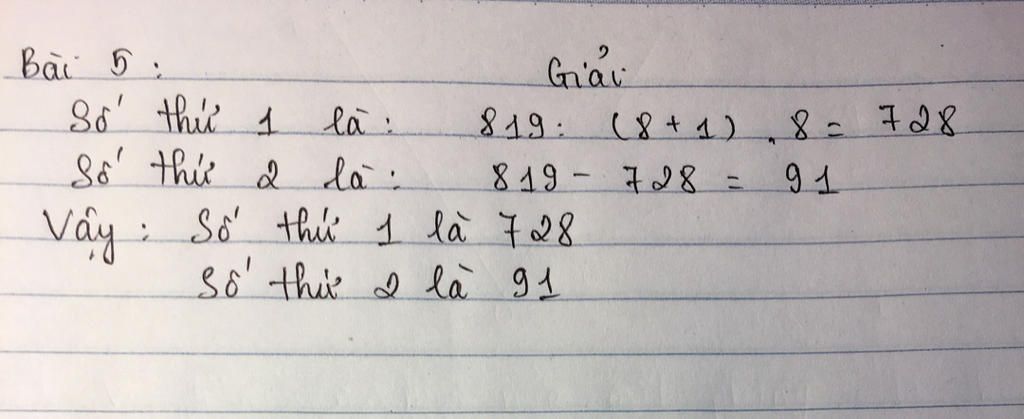 Bài 5 : Giải
Số thứ 1 là : 819 : (8 + 1) . 8 = 728
Số thứ 2 là : 819 - 728 = 91
Vậy : Số thứ 1 là 728
Số thứ 2 là 91